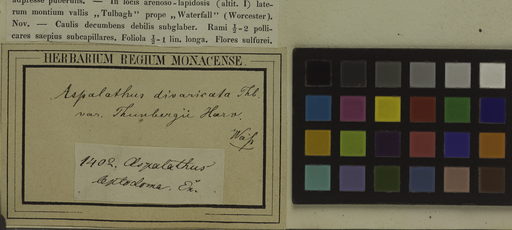 adpresse puberulis. — In locis arenoso-lapidosis (altit. I) late-
rum montium vallis „Tulbagh" prope „Waterfall" (Worcester).
Nov. — Caulis decumbens debilis subglaber. Rami ½-2 polli-
cares saepius subcapillares. Foliola ½-1 lin. longa. Flores sulfurei.
HERBARIUM REGIUM MONACENSE.
Aspalathus divaricata Thb.
var. Thunbergii Harv.
1402. Aspalathus
leptocoma. E.